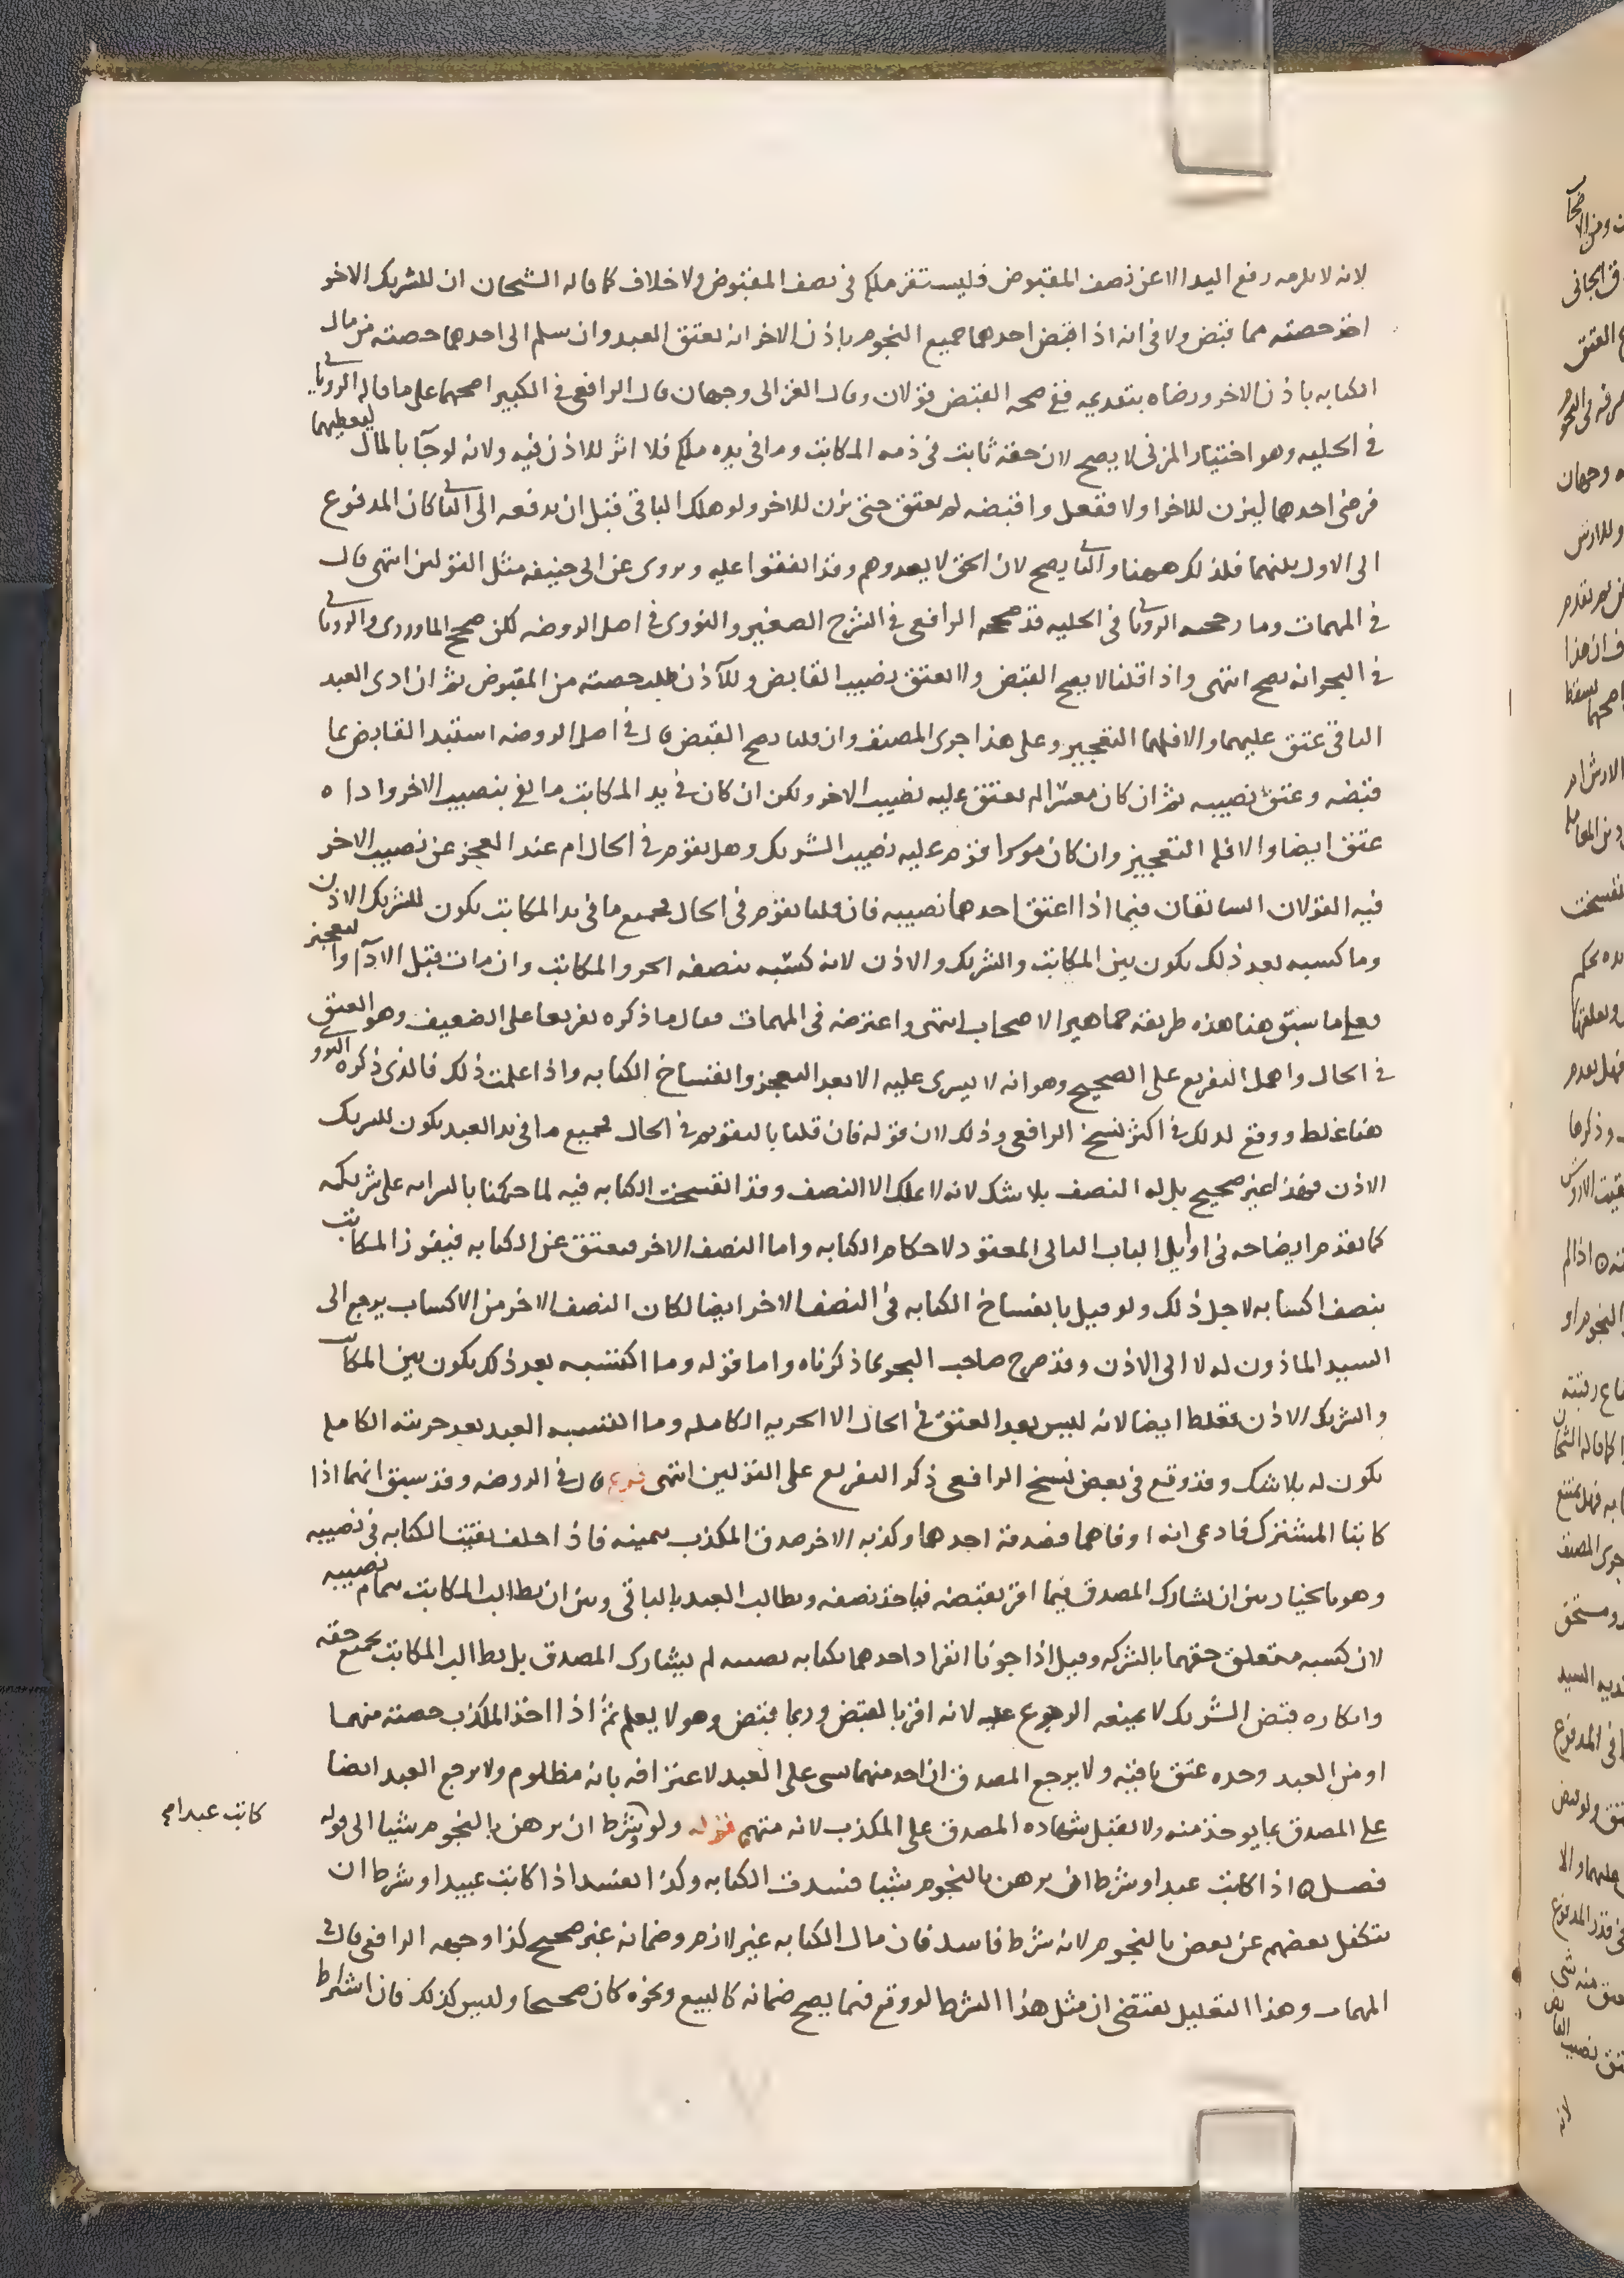 لانه لا يلزمه رفع اليد الا عن نصف المقبوض فليستقر ملكه في نصف المقبوض ولا خلاف كما قاله الشيخان ان للشريك الاخر
اخذ حصته مما قبض ولا في انه اذا اقبض احدهما جميع النجوم باذن الاخر انه يعتق العبد وان سلم الى احدهما حصته من مال
الكتابه باذن الاخر ورضاه بتقديمه ففي صحه القبض قولان وقال الغزالي وجهان قال الرافعي في الكبير اصحهما على ما قاله الروياني
في الحليه وهو اختيار المزني لا يصح لان حقه ثابت في ذمه المكاتب وما في يده ملكه فلا اثر للاذن فيه ولانه لو جآ بالمال ليعطيهما
فرضي احدهما ليزن للاخر اولا ففعل واقبضه لم يعتق حتى يزن للاخر ولو هلك الباقي قبل ان يدفعه الى الثاني كان المدفوع
الى الاول بينهما فلذلك ههنا والثاني يصح لان الحق لا يعدوهم وقد اتفقوا عليه ويروى عن ابي حنيفه مثل القولين انتهى قال
في المهمات وما رجحه الروياني في الحليه قد صححه الرافعي في الشرح الصغير والنووي في اصل الروضه لكن صحح الماوردي والروياني
في البحر انه يصح انتهى واذا قلنا لا يصح القبض ولا العتق نصيب القابض وللآذن طلب حصته من المقبوض ثم ان ادى العبد
الباقي عتق عليهما والا فلهما التعجيز وعلى هذا جرى المصنف وان قلنا يصح القبض قال في اصل الروضه استبد القابض بما
قبضه وعتق نصيبه ثم ان كان معسرا لم يعتق عليه نصيب الاخر ولكن ان كان في يد المكاتب ما يفي بنصيب الاخر واداه
عتق ايضا والا فله التعجيز وان كان موسرا قوم عليه نصيب الشريك وهل يقوم في الحال ام عند العجز عن نصيب الاخر
فيه القولان السابقان فيما اذا اعتق احدهما نصيبه فان قلنا يقوم في الحال فجميع ما في يد المكاتب يكون للشريك الاذن
وما كسبه بعد ذلك يكون بين المكاتب والشريك والاذن لانه كسبه بنصفه الحر والمكاتب وان مات قبل الادآ والتعجيز
فعلى ما سبق هنا هذه طريقه جماهير الاصحاب انتهى واعترضه في المهمات فقال ما ذكره تفريعا على الضعيف وهو العتق
في الحال واهمل التفريع على الصحيح وهو انه لا يسري عليه الا بعد العجز وانفساخ الكتابه واذا علمت ذلك فالذي ذكره النووي
هنا غلط ووقع لذلك في اكثر نسخ الرافعي وذلك لان قوله فان قلنا بالتقويم في الحال فجميع ما في يد العبد يكون للشريك
الاذن فهذا غير صحيح بل له النصف بلا شك لانه لا يملك الا النصف وقد انفسخت الكتابه فيه لما حكمنا بالسرايه على شريكه
كما تقدم ايضاحه في اوايل الباب الثاني المعقود لاحكام الكتابه واما النصف الاخر فيعتق عن الكتابه فيفوز المكاتب
بنصف اكسابه لاجل ذلك ولو قيل بانفساخ الكتابه في النصف الاخر ايضا لكان النصف الاخر من الاكساب يرجع الى
السيد الماذون له لا الى الاذن وقد صرح صاحب البحر بما ذكرناه واما قوله وما اكتسبه بعد ذلك يكون بين المكاتب
والشريك الاذن فغلط ايضا لانه ليس بعد العتق في الحال الا الحريه الكامله وما اكتسبه العبد بعد حريته الكامله
يكون له بلا شك وقد وقع في بعض نسخ الرافعي ذكر التفريع على القولين انتهى فرع قال في الروضه وقد سبق انهما اذا
كاتبا المشترك فادعى انه اوفاهما فصدقه احدهما وكذبه الاخر صدق المكذب بيمينه فاذا حلف بقيت الكتابه في نصيبه
وهو بالخيار بين ان يشارك المصدق فيما اقر بقبضه فياخذ نصفه ويطالب العبد بالباقي وبين ان يطالب المكاتب بتمام نصيبه
لان كسبه متعلق حقهما بالشركه وقيل اذا جوزنا انفراد احدهما بكتابه نصيبه لم يشارك المصدق بل يطالب المكاتب بجميع حقه
وانكاره قبض الشريك لا يمنعه الرجوع عليه لانه اقر بالقبض وربما قبض وهو لا يعلم ثم اذا اخذ المكذب حصته منهما
او من العبد وحده عتق باقيه ولا يرجع المصدق ان اخذ منهما شي على العبد لاعترافه بانه مظلوم ولا يرجع العبد ايضا
على المصدق بما يوخذ منه ولا تقبل شهاده المصدق على المكذب لانه متهم قوله ولو شرط ان يرهن بالنجوم شيا الى قوله
فصل اذا كاتب عبدا وشرط ان يرهن بالنجوم شيا فسدت الكتابه وكذا تفسد اذا كاتب عبيدا وشرط ان
يتكفل بعضهم عن بعض بالنجوم لانه شرط فاسد فان مال الكتابه غير لازم وضمانه غير صحيح كذا وجهه الرافعي قال في
المهمات وهذا التعليل يقتضي ان مثل هذا الشرط لو وقع فيما يصح ضمانه كالبيع ونحوه كان صحيحا وليس كذلك فان اشتراط
كاتب عبدا